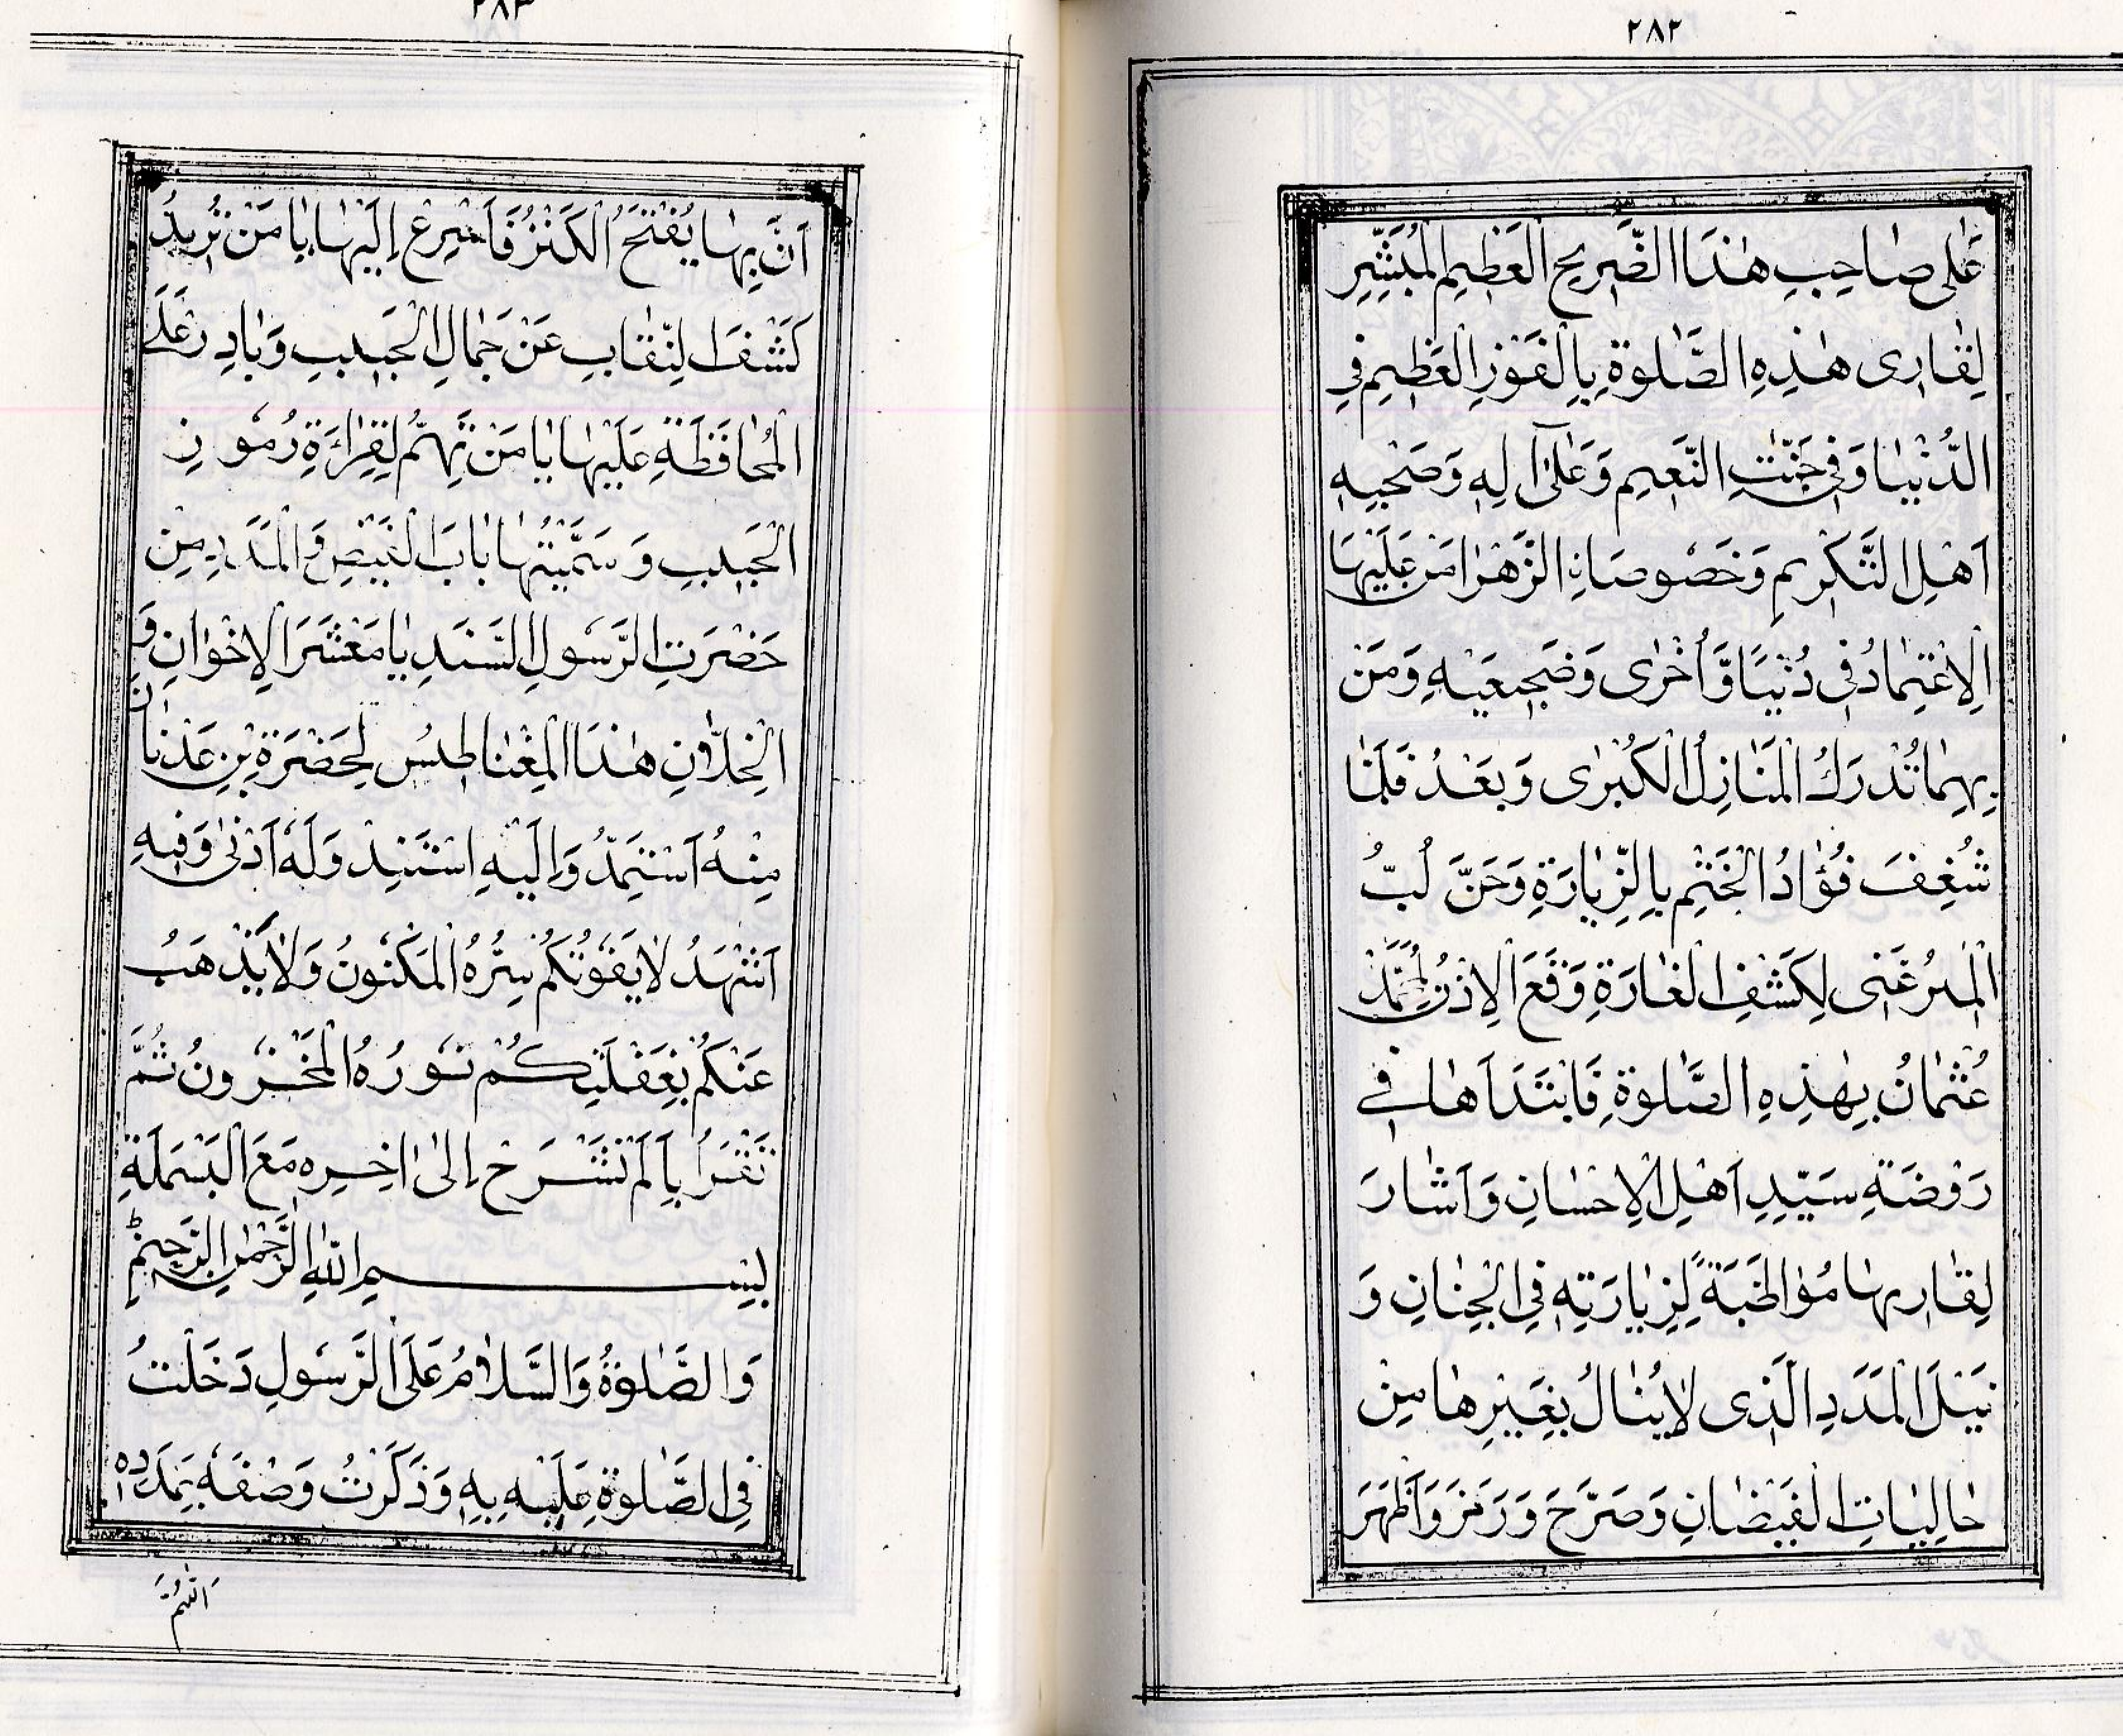 ٢٨٢
عَلٰى صٰاحِبِ هٰذَا الضَّرِيحِ الْعَظِيمِ الْمُبَشِّرِ
لِقٰارِى هٰذِهِ الصَّلٰوةِ بِالْفَوْزِ الْعَظِيمِ فِى
الدُّنْيٰا وَفِى جَنّٰتِ النَّعِيمِ وَعَلٰى اٰلِهِ وَصَحْبِهِ
اَهْلِ التَّكْرِيمِ وَخُصُوصًا نِ الزَّهْرٰا مَنْ عَلَيْهَا
الِاعْتِمٰادُ فِى دُنْيَا وَّاُخْرٰى وَضَجِيعَيْهِ وَمَنْ
بِهِمٰا تُدْرَكُ الْمَنٰازِلُ الْكُبْرٰى وَبَعْدُ فَلَمّٰا
شُغِفَ فُؤٰادُ الْخَتْمِ بِالزِّيٰارَةِ وَحَنَّ لُبُّ
الْمِيرْغَنِى لِكَشْفِ الْغٰارَةِ وَقَعَ الْاِذْنُ لِمُحَمَّدْ
عُثْمٰانُ بِهٰذِهِ الصَّلٰوةِ فَابْتَدَاَهٰا فِى
رَوْضَةِ سَيِّدِ اَهْلِ الْاِحْسٰانِ وَاَشٰارَ
لِقٰارِيهٰا مُوٰاظَبَةً لِزِيٰارَتِهِ فِى الْجِنٰانِ وَ
نَيْلَ الْمَدَدِ الَّذِى لٰا يُنٰالُ بِغَيْرِهٰا مِنْ
حٰالِيٰاتِ الْفَيْضٰانِ وَصَرَّحَ وَرَمَزَ وَاَظْهَرَ
٢٨٣
اَنَّ بِهٰا يُفْتَحُ الْكَنْزُ فَاَسْرِعْ اِلَيْهٰا يٰا مَنْ تُرِيدُ
كَشْفَ النِّقٰابِ عَنْ جَمٰالِ الْحَبِيبِ وَبٰادِرْ عَلَى
الْمُحٰافَظَةِ عَلَيْهٰا يٰا مَنْ تَهِمُّ لِقِرٰاءَةِ رُمُوزِ
الْحَبِيبِ وَسَمَّيْتُهٰا بٰابَ الْفَيْضِ وَالْمَدَدِ مِنْ
حَضْرَتِ الرَّسُولِ السَّنَدِ يٰا مَعْشَرَ الْاِخْوٰانِ وَ
الْخِلّٰانِ هٰذَا الْمِغْنٰاطِيسُ لِحَضْرَةِ بْنِ عَدْنٰانَ
مِنْهُ اَسْتَمِدُّ وَاِلَيْهِ اسْتَنِدْ وَلَهُ اَدْنٰى وَفِيهِ
اَشْهَدُ لٰا يَفُوتُكُمْ سِرُّهُ الْمَكْنُونُ وَلٰا يَذْهَبُ
عَنْكُمْ بِغَفْلَتِكُمْ نُورُهُ الْمَخْزُونُ ثُمَّ
تَقْرَأُ بِاَلَمْ نَشْرَحْ اِلٰى اٰخِرِهِ مَعَ الْبَسْمَلَةِ
بِسْمِ اللّٰهِ الرَّحْمٰنِ الرَّحِيمِ
وَالصَّلٰوةُ وَالسَّلٰامُ عَلَى الرَّسُولِ دَخَلْتُ
فِى الصَّلٰوةِ عَلَيْهِ بِهِ وَذَكَرْتُ وَصْفَهُ بِمَدَدِهِ
اَللّٰهُمَّ